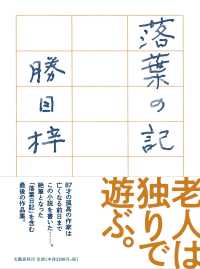 落葉の記
勝目梓
老人は
独りで
遊ぶ。
87才の孤高の作家は
亡くなる前日まで
この小説を書いた――。
絶筆となった
「落葉日記」を含む
最後の作品集。
文藝春秋刊